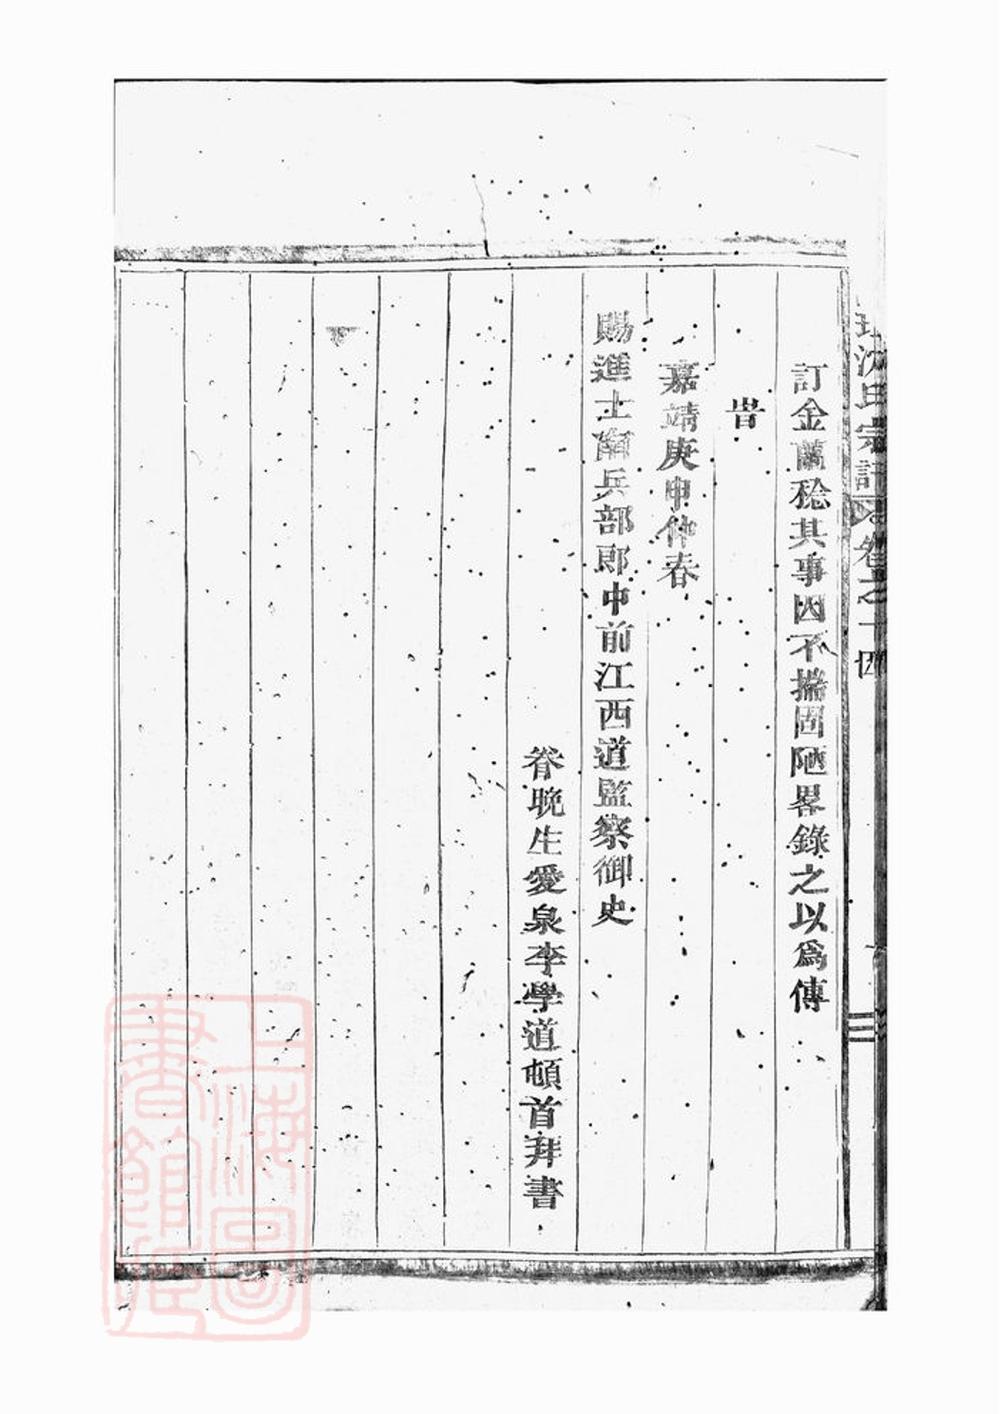 沈氏宗譜 卷之十四
訂金蘭稔其事因不揣固陋畧錄之以爲傳
旹
嘉靖庚申仲春
賜進士南兵部郎中前江西道監察御史
眷晚生愛泉李學道頓首拜書
上海圖書館藏